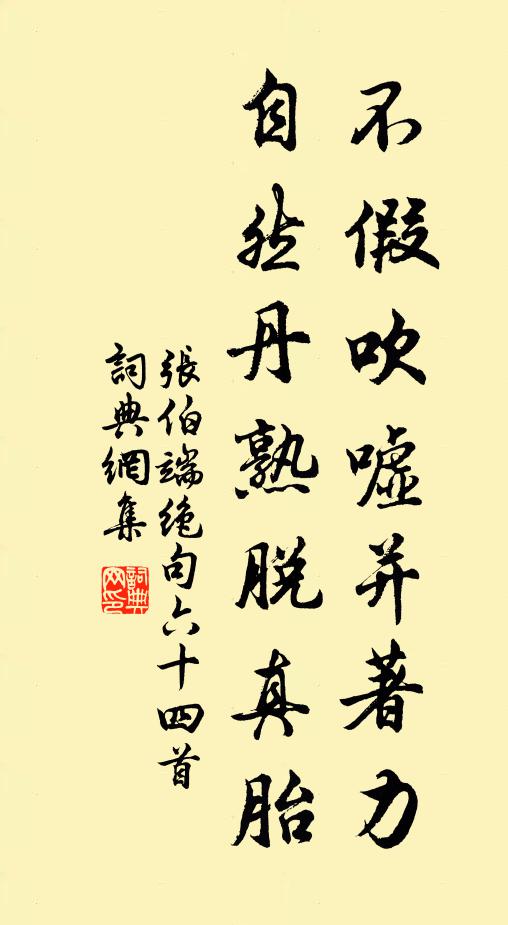 不假吹嘘并著力
自然丹熟脱真胎
張伯端絶句六十四首
詞典網集
詞典
网印